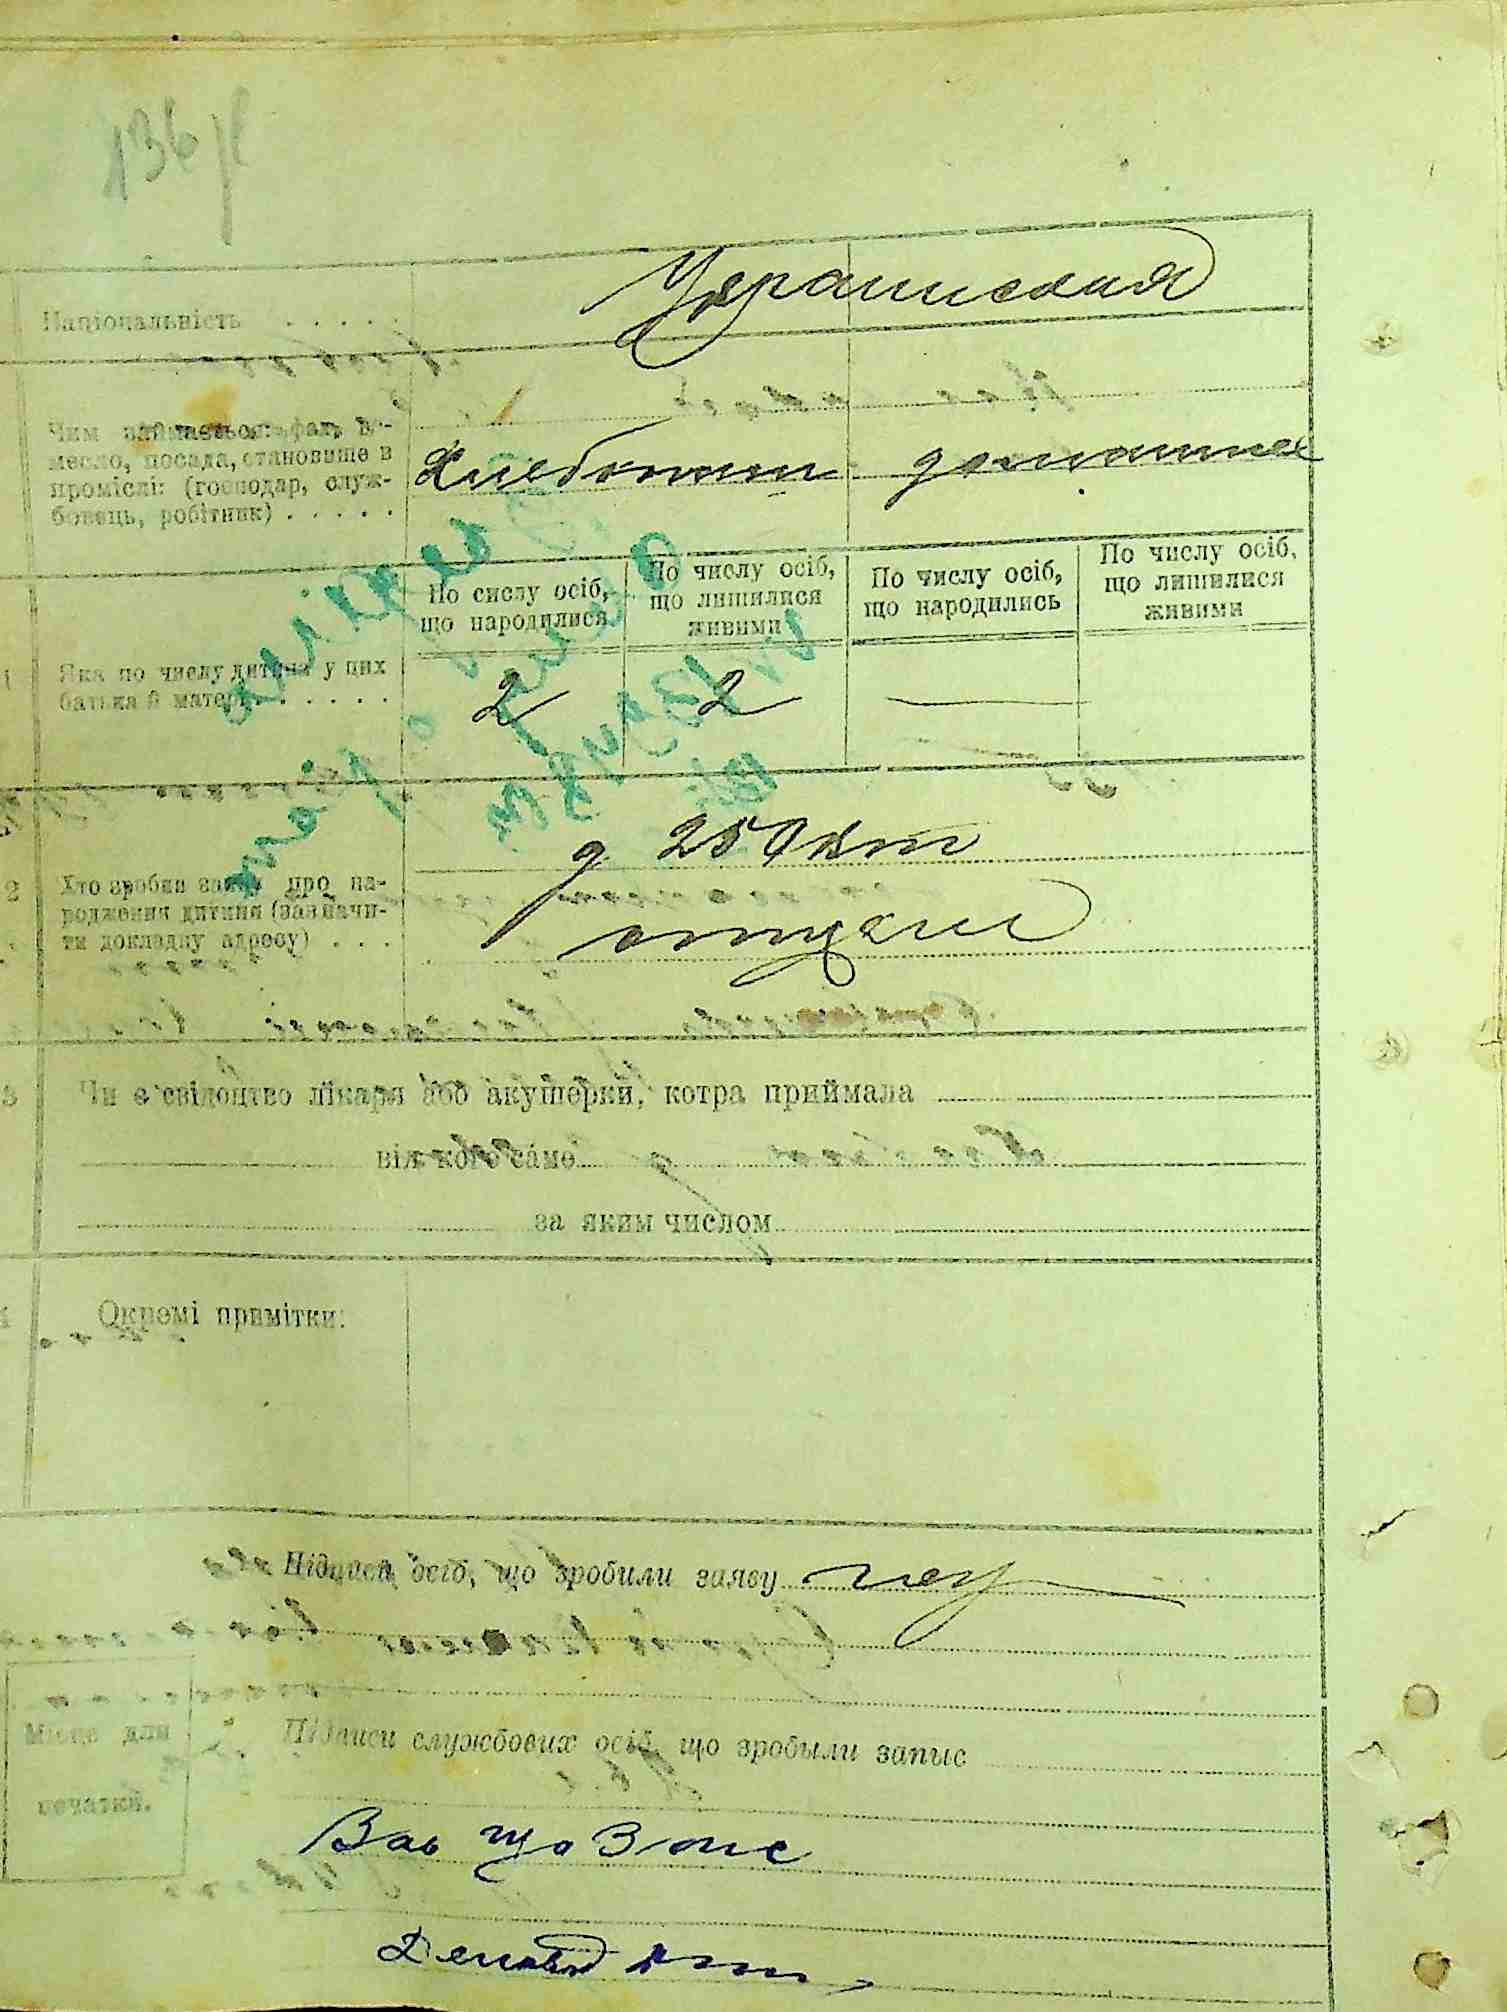 136
Національність . . . . .
Украинская
Чим займається: фах, ре-
месло, посада, становище в
промислі: (господар, служ-
бовець, робітник) . . . . .
Хлебопаш домашнее
По сислу осіб, що народилися
По числу осіб, що лишилися живими
По числу осіб, що народились
По числу осіб, що лишилися живими
1 Яка по числу дитина у цих
батька й матери . . . . .
2 2 —
2 Хто зробив заяву про на-
родження дитини (зазначи-
ти докладну адресу) . . .
отцем
3 Чи є свідоцтво лікаря або акушерки, котра приймала
від кого саме
за яким числом
4 Окремі примітки:
Підписи осіб, що зробили заяву
Місце для
печатки.
Підписи службових осіб, що зробыли запис